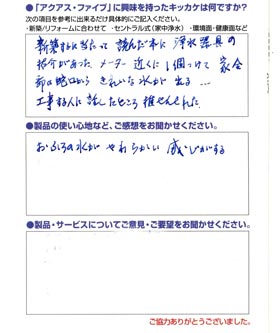 ●「アクアス・ファイブ」に興味を持ったキッカケは何ですか?
次の項目を参考に出来るだけ具体的にご記入ください。
・新築/リフォームに合わせて ・セントラル式(家中浄水) ・環境面・健康面など
新築するに当たって 読んだ本に 浄水器具の
紹介があった。メーター近くに1個つけて 家全
部の蛇口から きれいな水が出る …
工事する人に話したところ 推せんされた。
●製品の使い心地など、ご感想をお聞かせください。
おふろの水が やわらかい 感じがする
●製品・サービスについてご意見・ご要望をお聞かせください。
ご協力ありがとうございました。